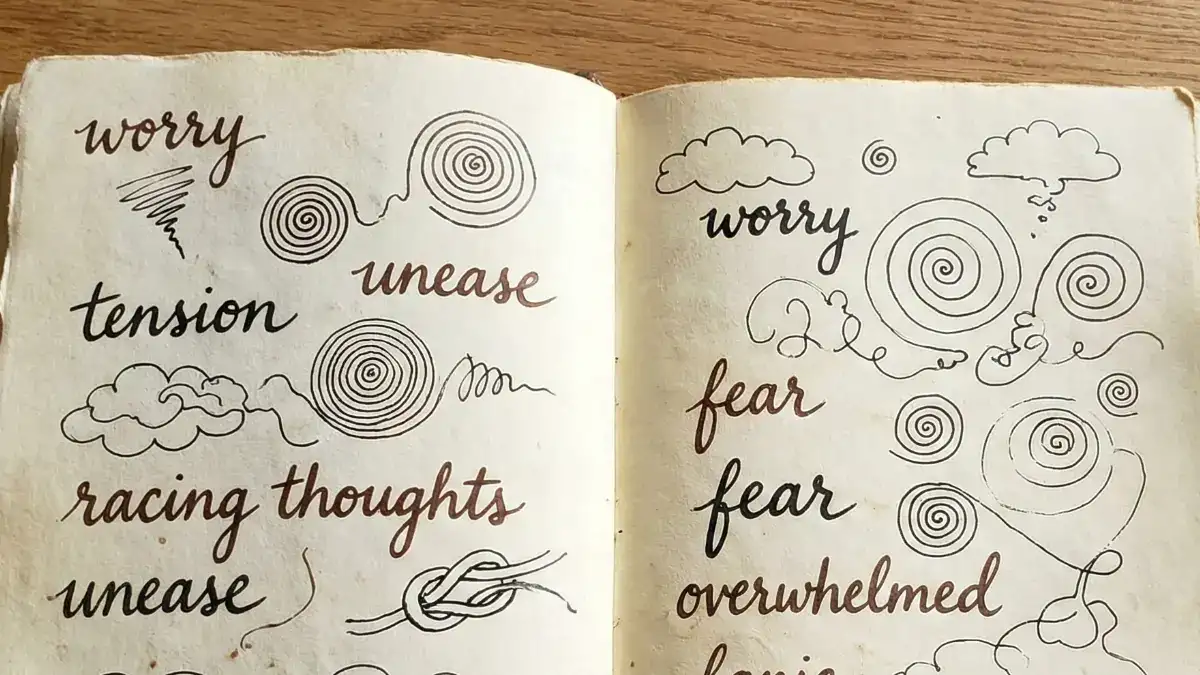 worry
unease
tension
racing thoughts
unease
worry
fear
fear
overwhelmed